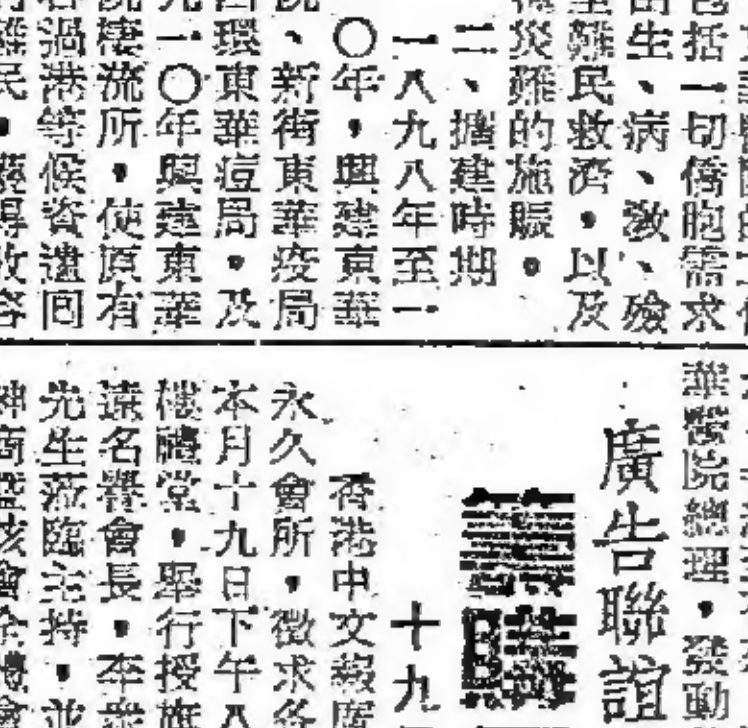 括一切僑胞需求
生、病、教、殮
難民救濟,以及
災難的施賑。
二、擴建時期
一八九八年至一
〇年,興建東華
、新街東華疫局
環東華痘局。及
一〇年興建東華
棲流所,使原有
過港等候資遣回
難民,獲得收容
華醫院總理,發動
廣告聯誼
十九
香港中文報廣
永久會所,徵求各
本月十九日下午八
樓禮堂,舉行授旗
遠名譽會長,李
先生蒞臨主持,並
紳商暨該會全體會